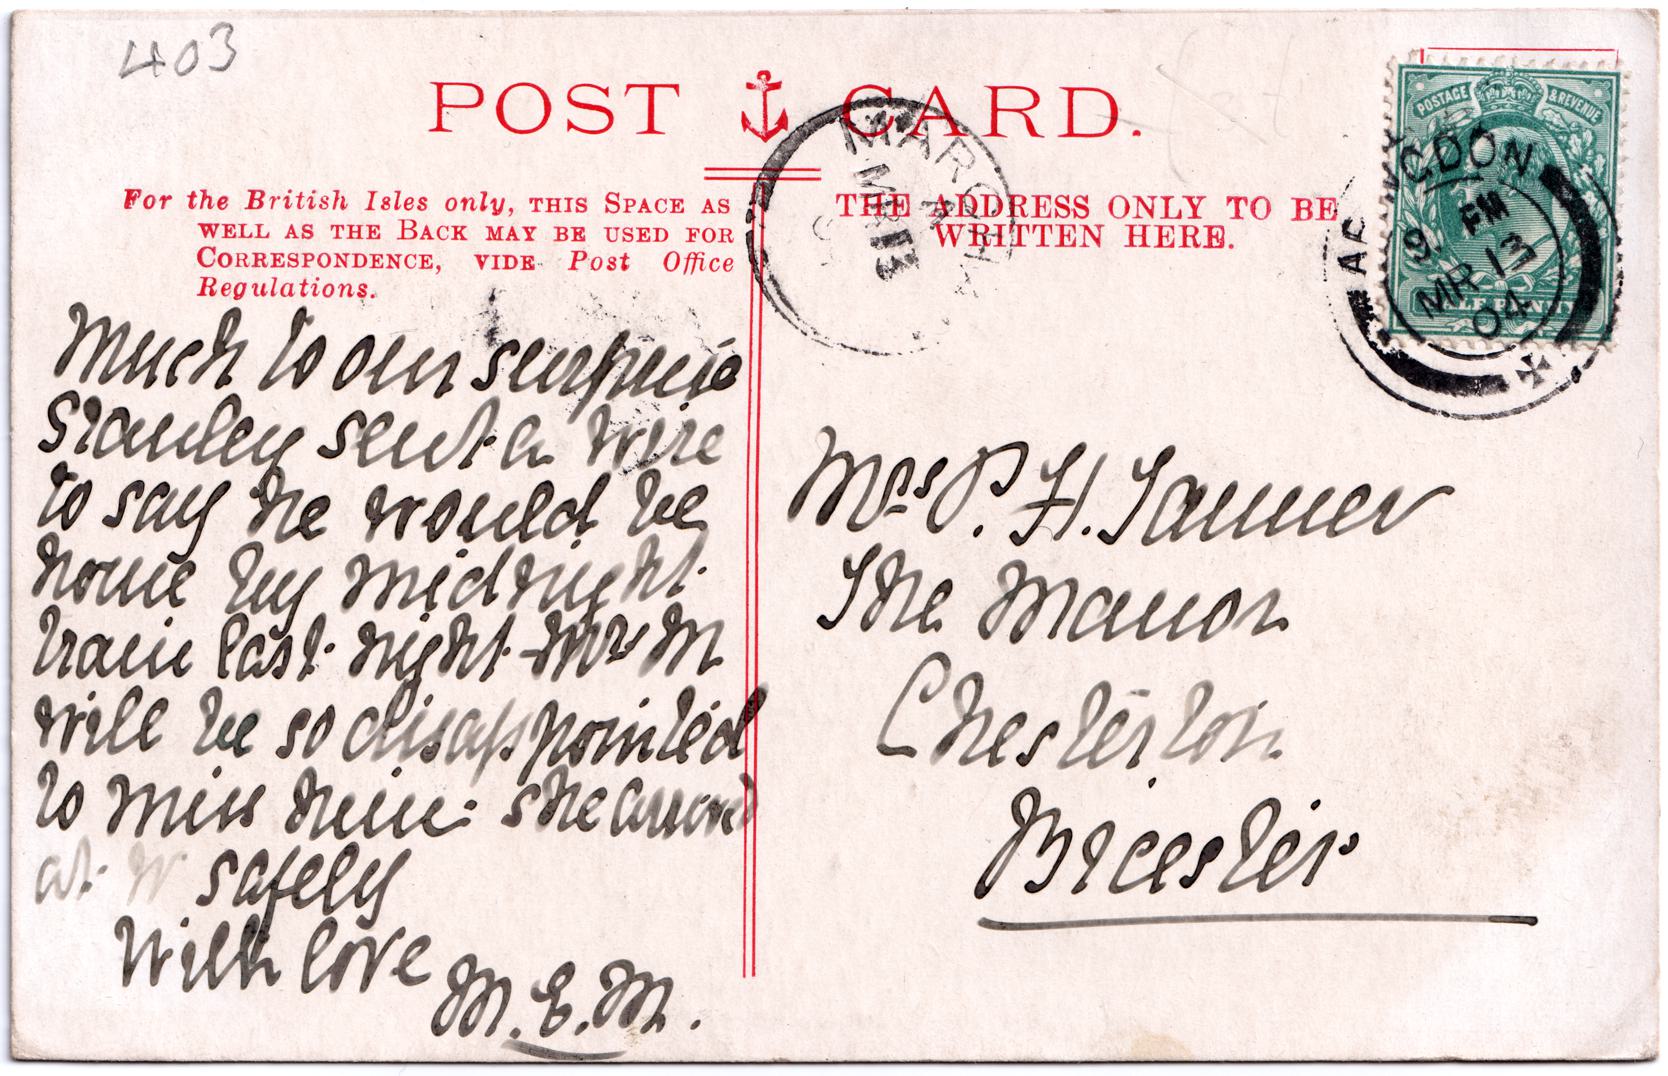 403
POST CARD.
For the British Isles only, THIS SPACE AS
WELL AS THE BACK MAY BE USED FOR
CORRESPONDENCE, VIDE Post Office
Regulations.
THE ADDRESS ONLY TO BE
WRITTEN HERE.
MARCH
MR 13
POSTAGE & REVENUE
HALF PENNY
ABINGDON
9 PM
MR 13
04
Much to our surprise
Stanley sent a wire
to say he would be
home by midnight
train last night - Mrs M
will be so disappointed
to miss him: she arrived
at W safely
With love
M.E.M.
Mrs P. H. Tanner
The Manor
Chesterton
Bicester